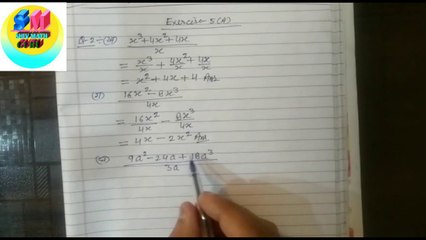 SM
SHIV MATH
GURU
Exercise 5(A)
Q-2÷(अ) x²+4x²+4x
x
= x³/x + 4x²/x + 4x/x
= x²+4x+4 Ans
(ब) 16x²-8x³
4x
= 16x²/4x - 8x³/4x
= 4x-2x² Ans
9a²-24a+18a³
3a